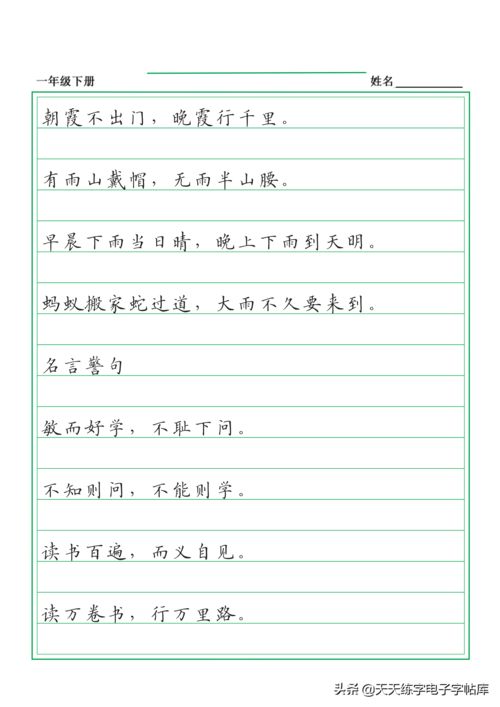 一年级下册 姓名
朝霞不出门，晚霞行千里。
有雨山戴帽，无雨半山腰。
早晨下雨当日晴，晚上下雨到天明。
蚂蚁搬家蛇过道，大雨不久要来到。
名言警句
敏而好学，不耻下问。
不知则问，不能则学。
读书百遍，而义自见。
读万卷书，行万里路。
头条@天天练字电子字帖库